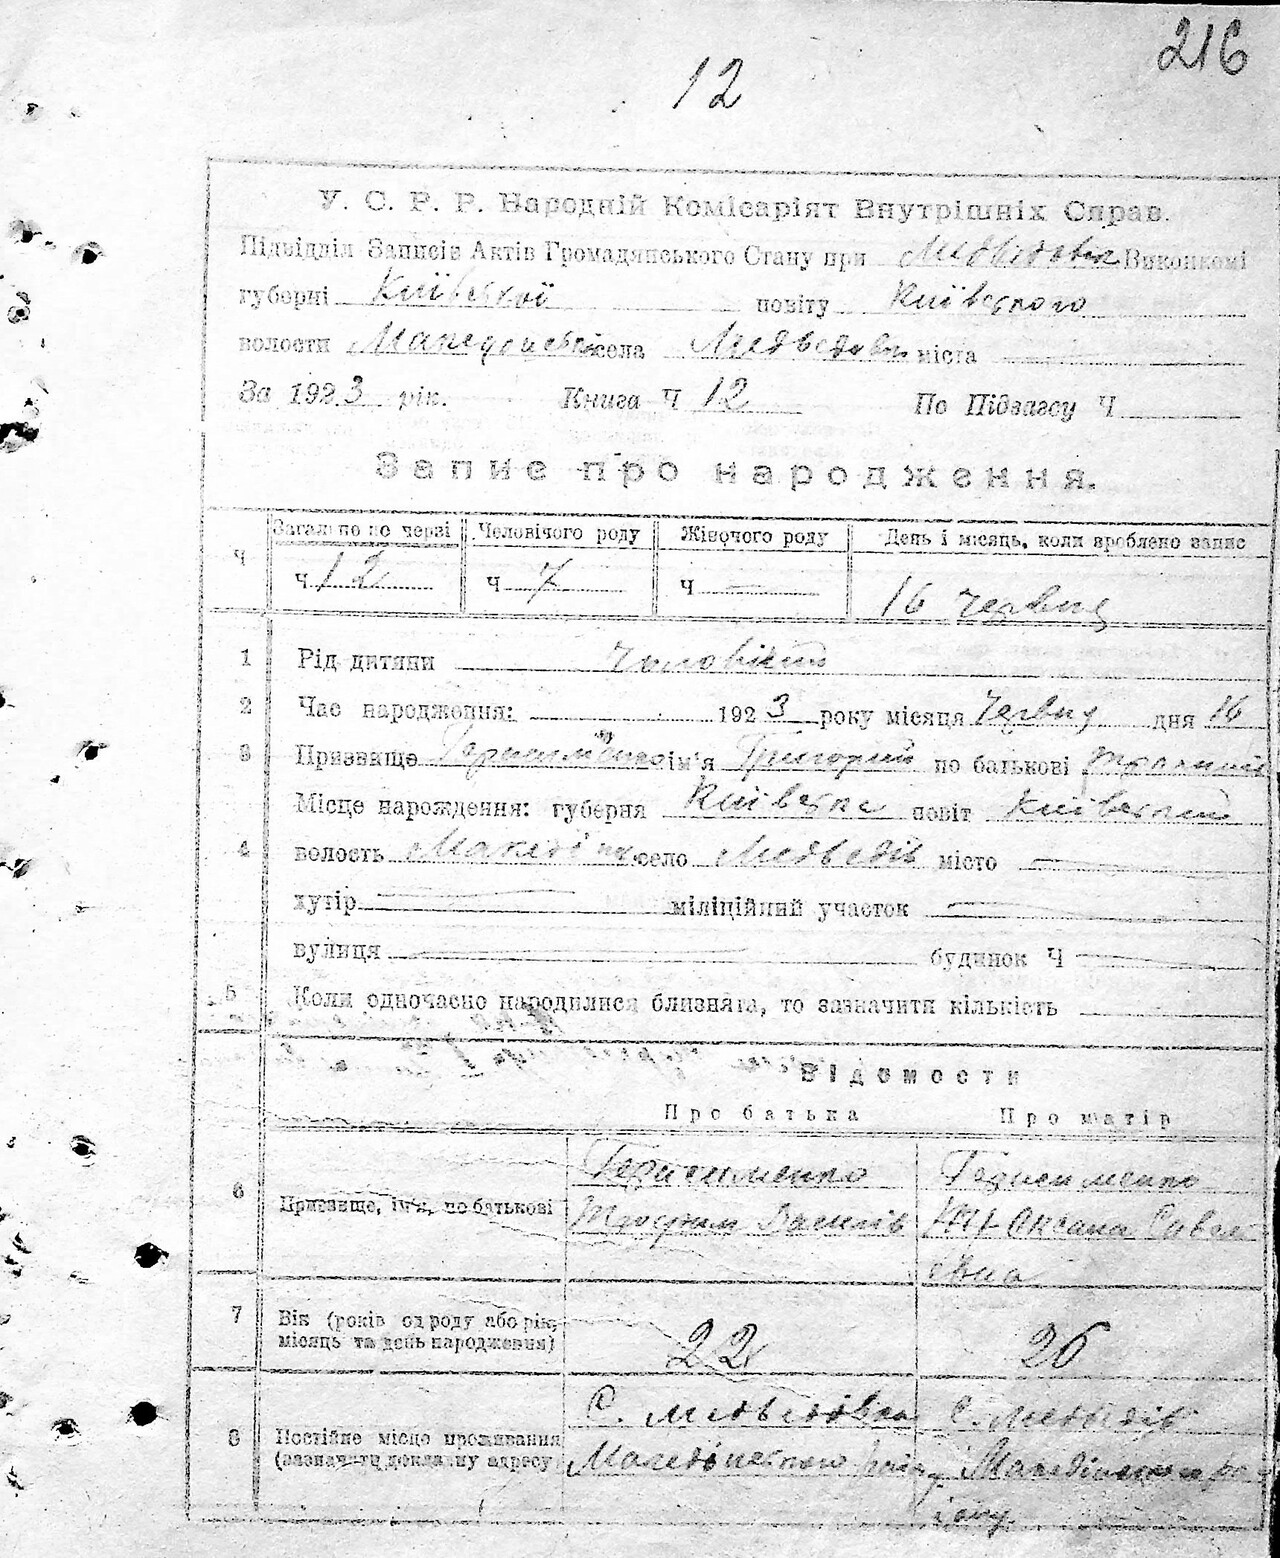 216
12
У. С. Р. Р. Народній Комісаріят Внутрішніх Справ.
Підвідділ Записів Актів Громадянського Стану при Виконкомі
губерні Київської повіту Київського
волости села Медведівки міста
За 1923 рік. Книга Ч 12 По Підзагсу Ч
Запис про народження.
Ч Загально по черзі Человічого роду Жіночого роду День і місяць, коли вроблено запис
Ч 12 Ч 7 Ч — 16 червня
1 Рід дитяни
2 Час народження: 1923 року місяця Червня дня 16
3 Призвище Герасименко ім'я Григорий по батькові
Місце нарождення: губерня Київська повіт Київський
4 волость село Медведів місто —
хутір — міліційний участок —
вулиця — будинок Ч —
5 Коли одночасно народилися близнята, то зазначити кількість
Відомости
Про батька Про матір
6 Призвище, ім'я, по батькові
Герасименко
Трофим Василів
Герасименко
Оксана Савел
ївна
7 Вік (років од роду або рік,
місяць та день народження)
22 26
8 Постійне місце проживання
(зазначити докладну адресу)
С. Медведівка
С. Медведів